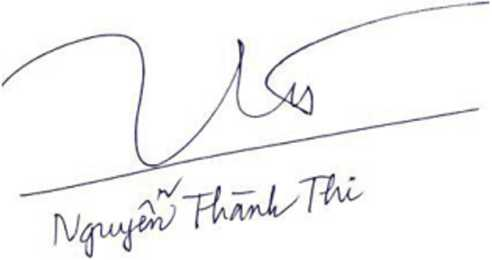 Nguyễn Thành Thi